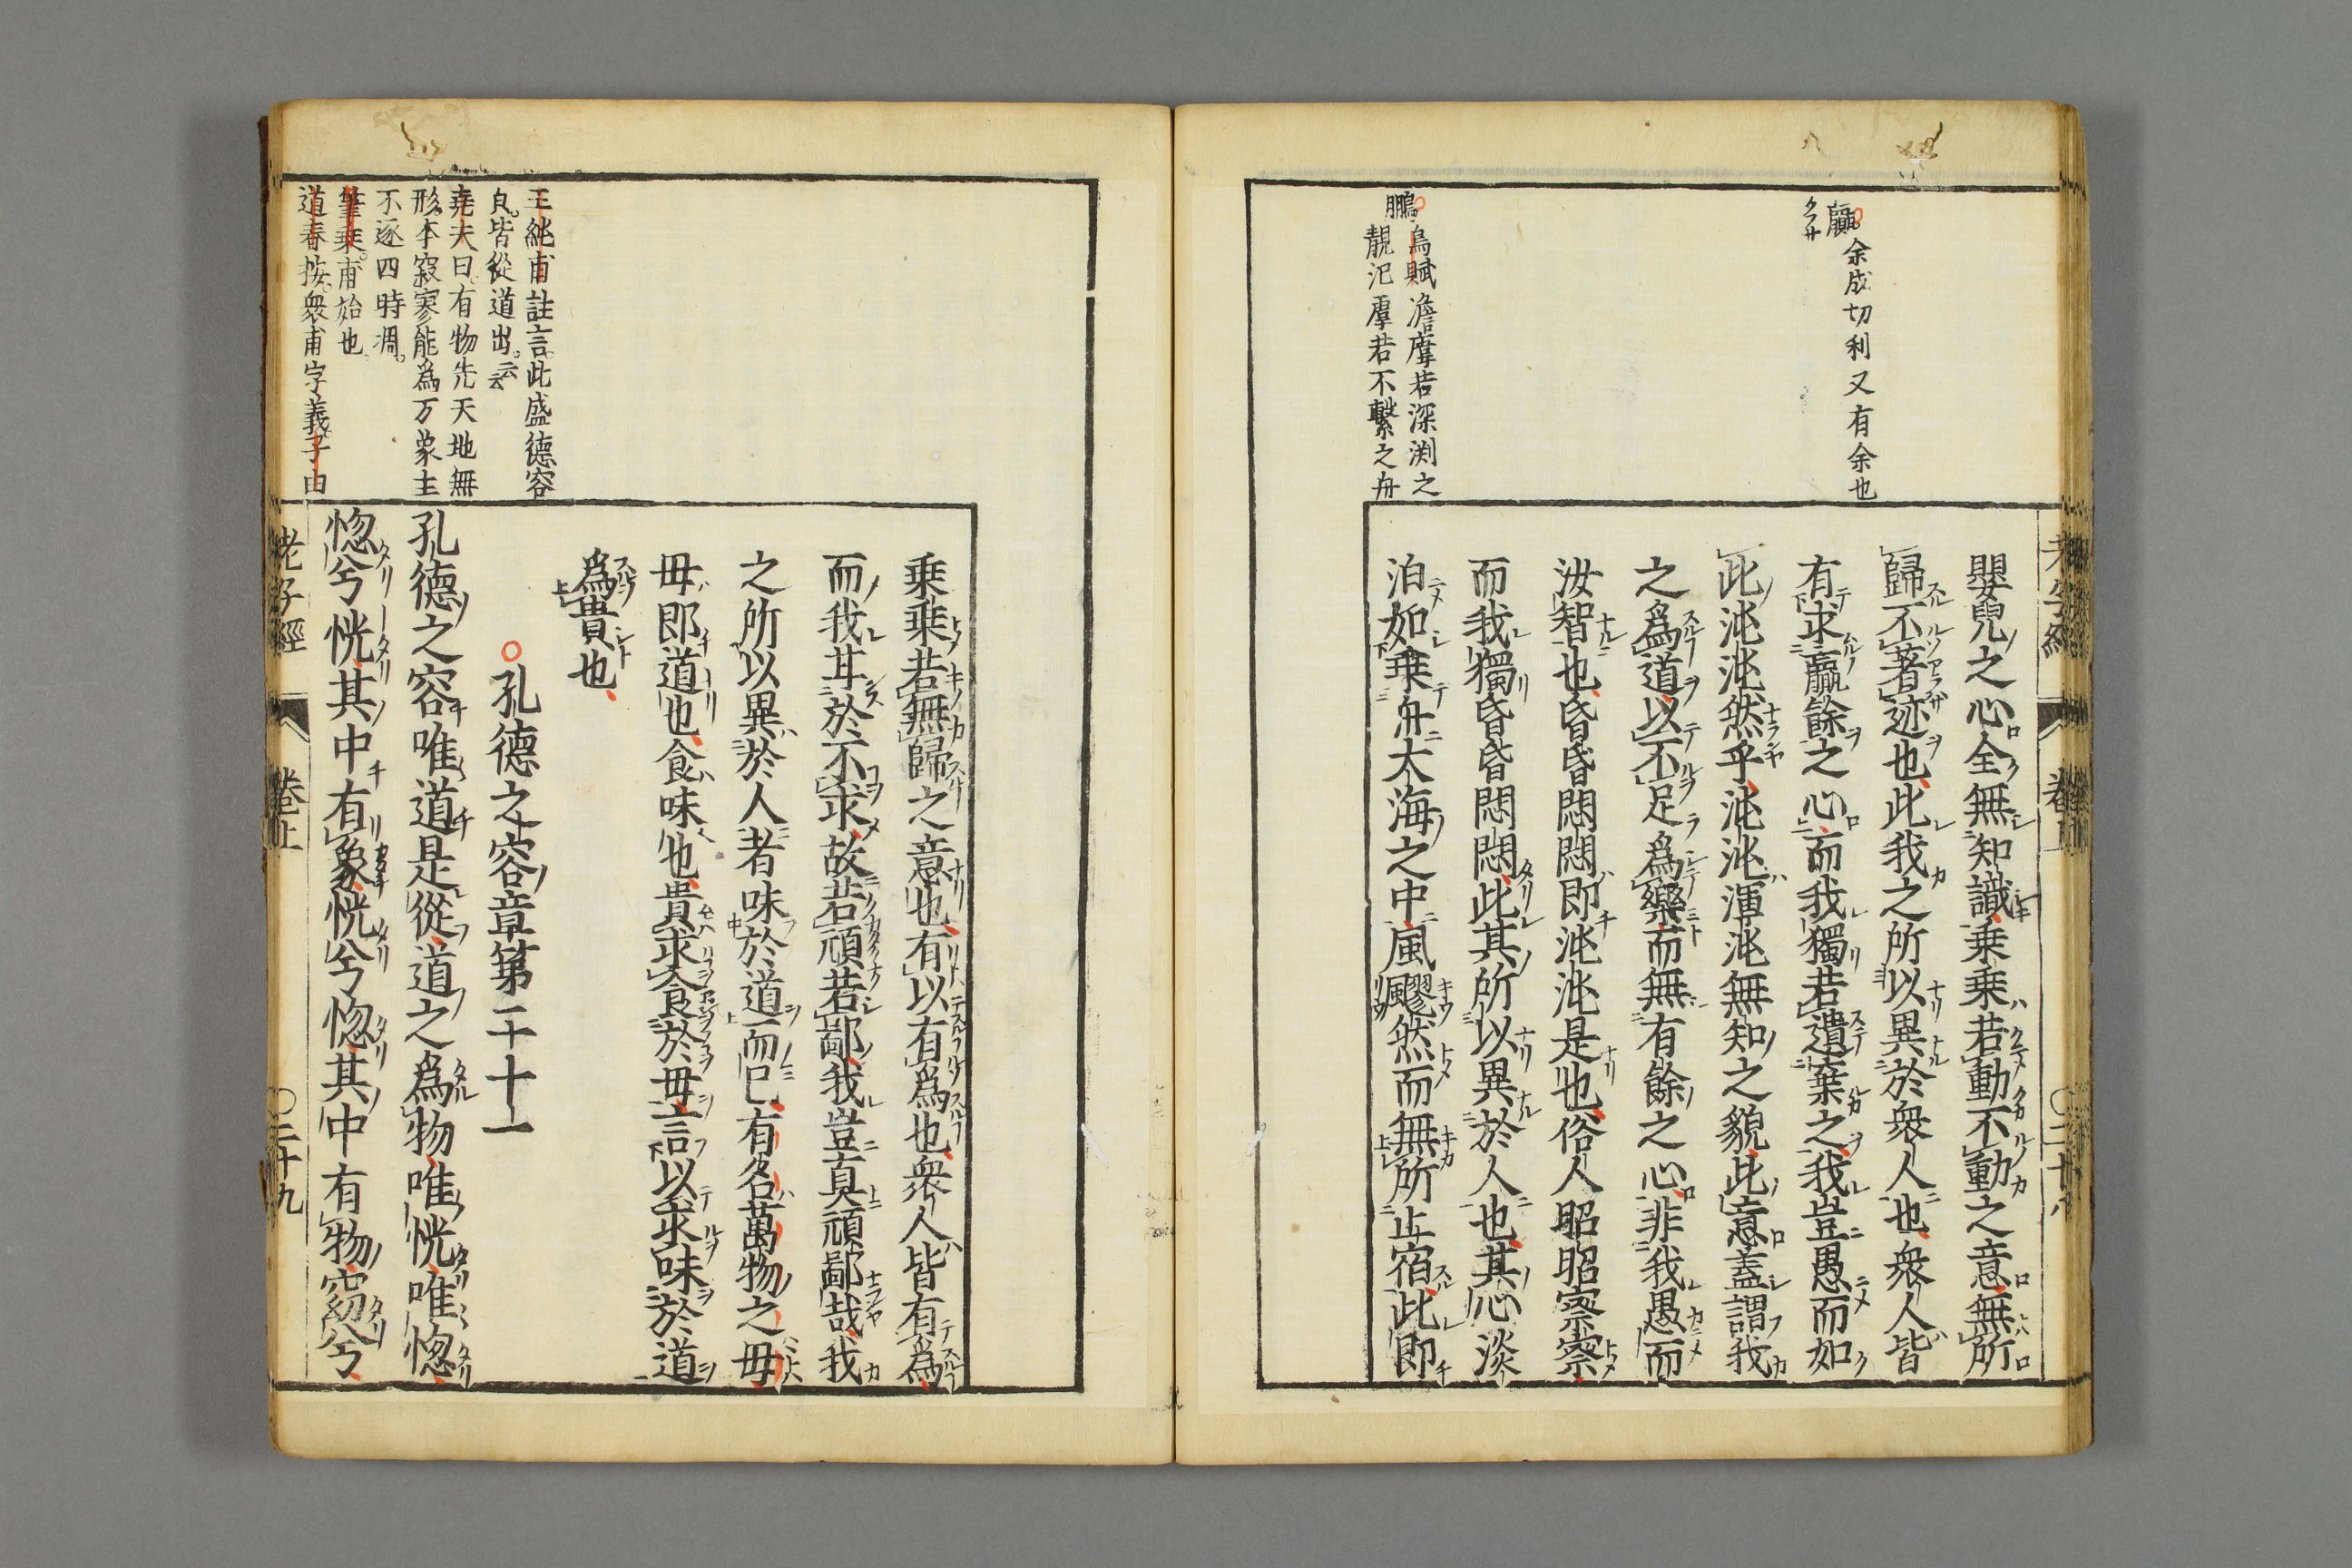 嬰兒之心全無知識乘乘若動不動之意無所
歸不著迹也此我之所以異於衆人也衆人皆
有求贏餘之心而我獨若遺棄之我豈愚而如
此沌沌然乎沌沌渾沌無知之貌此意蓋謂我
之爲道以不足爲樂而無有餘之心非我愚而
汝智也昏昏悶悶即沌沌是也俗人昭昭察察
而我獨昏昏悶悶此其所以異於人也其心淡
泊如乗舟大海之中風飂然而無所止宿此即
贏余成切利又有余也
鵬鳥賦澹虖若深渕之
靚汜虖若不繫之舟
乗乗若無歸之意也有以有爲也衆人皆有爲
而我甘於不求故若頑若鄙我豈真頑鄙哉我
之所以異於人者味於道而已有名萬物之母
母即道也食味也貴求食於母言以求味於道
爲貴也
孔德之容章第二十一
孔德之容唯道是從道之爲物唯恍唯惚
惚兮恍其中有象恍兮惚其中有物窈兮
老子經 卷上 二十九
王純甫註言此盛德容
皃皆從道出云云
堯夫曰有物先天地無
形本寂寥能爲万象主
不逐四時凋
筆乗甫始也
道春按衆甫字義子由